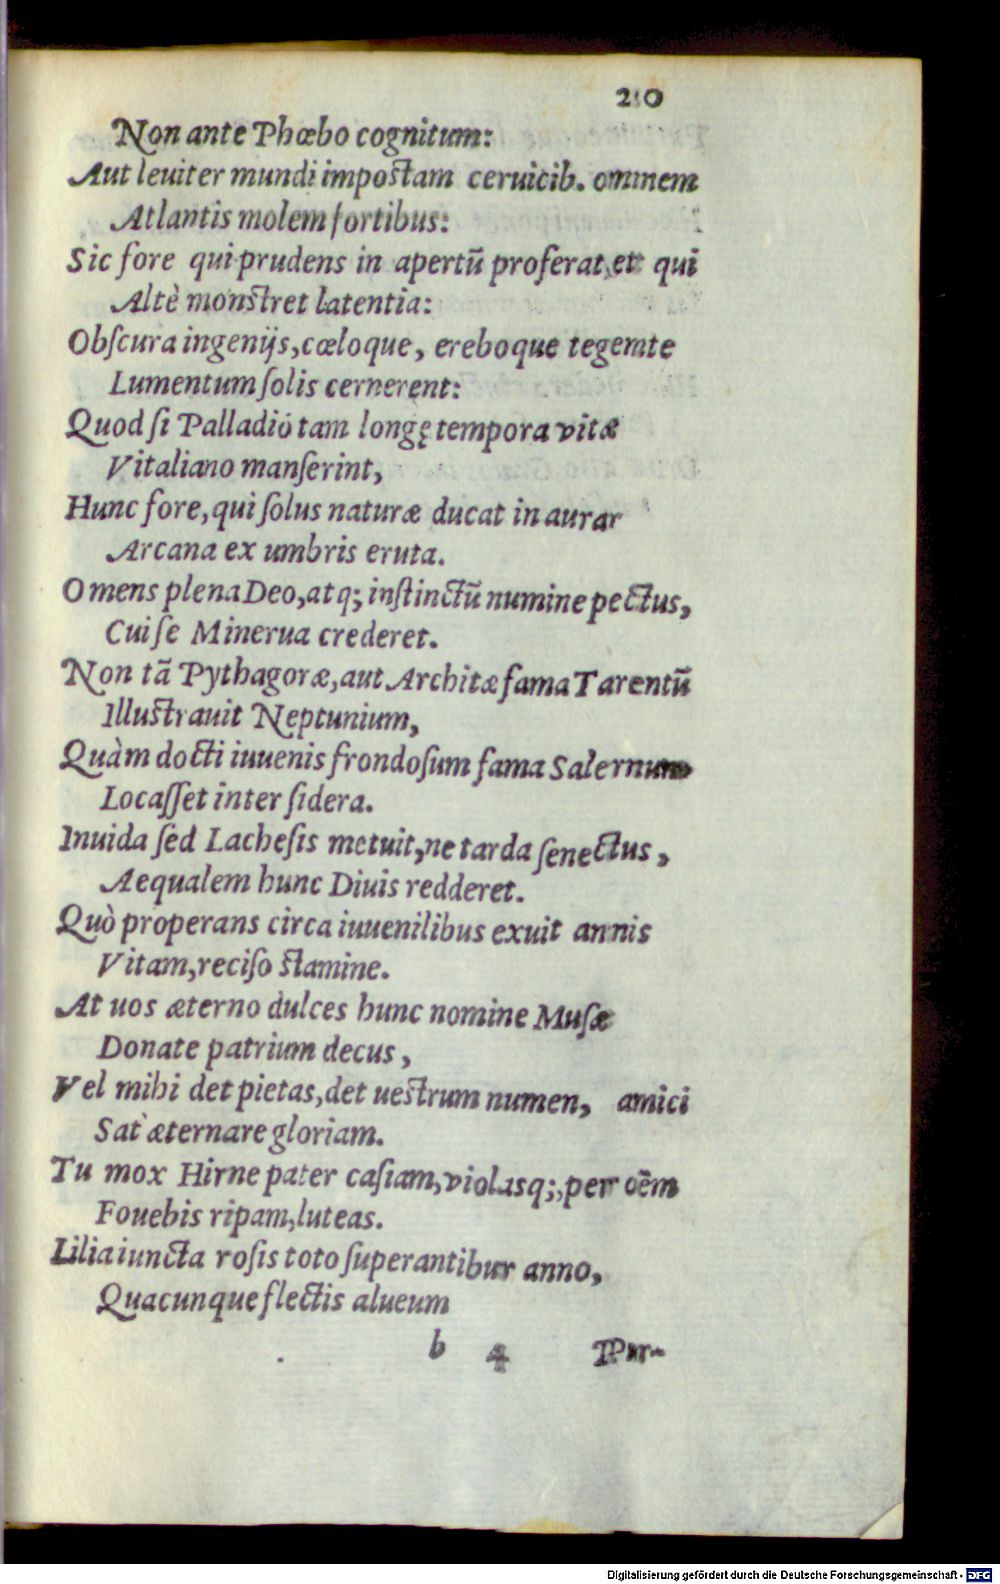 20
Non ante Phœbo cognitum:
Aut leuiter mundi impostam ceruicib. omnem
Atlantis molem fortibus:
Sic fore qui prudens in apertũ proferat, et qui
Altè monstret latentia:
Obſcura ingenijs, cœloque, ereboque tegemte
Lumentum ſolis cernerent:
Quod ſi Palladio tam longę tempora vitæ
Vitaliano manſerint,
Hunc fore, qui ſolus naturæ ducat in auras
Arcana ex umbris eruta.
O mens plena Deo, atq; inſtinctũ numine pectus,
Cui ſe Minerua crederet.
Non tã Pythagoræ, aut Architæ fama Tarentũ
Illustrauit Neptunium,
Quàm docti iuuenis frondoſum fama Salernum
Locaſſet inter ſidera.
Inuida ſed Lacheſis metuit, ne tarda ſenectus,
Aequalem hunc Diuis redderet.
Quò properans circa iuuenilibus exuit annis
Vitam, reciſo stamine.
At uos æterno dulces hunc nomine Muſæ
Donate patrium decus,
Vel mihi det pietas, det uestrum numen, amici
Sat æternare gloriam.
Tu mox Hirne pater caſiam, violasq;, per oẽm
Fouebis ripam, luteas.
Lilia iuncta roſis toto ſuperantibus anno,
Quacunque flectis alueum
b 4 Pur-
Digitalisierung gefördert durch die Deutsche Forschungsgemeinschaft - DFG